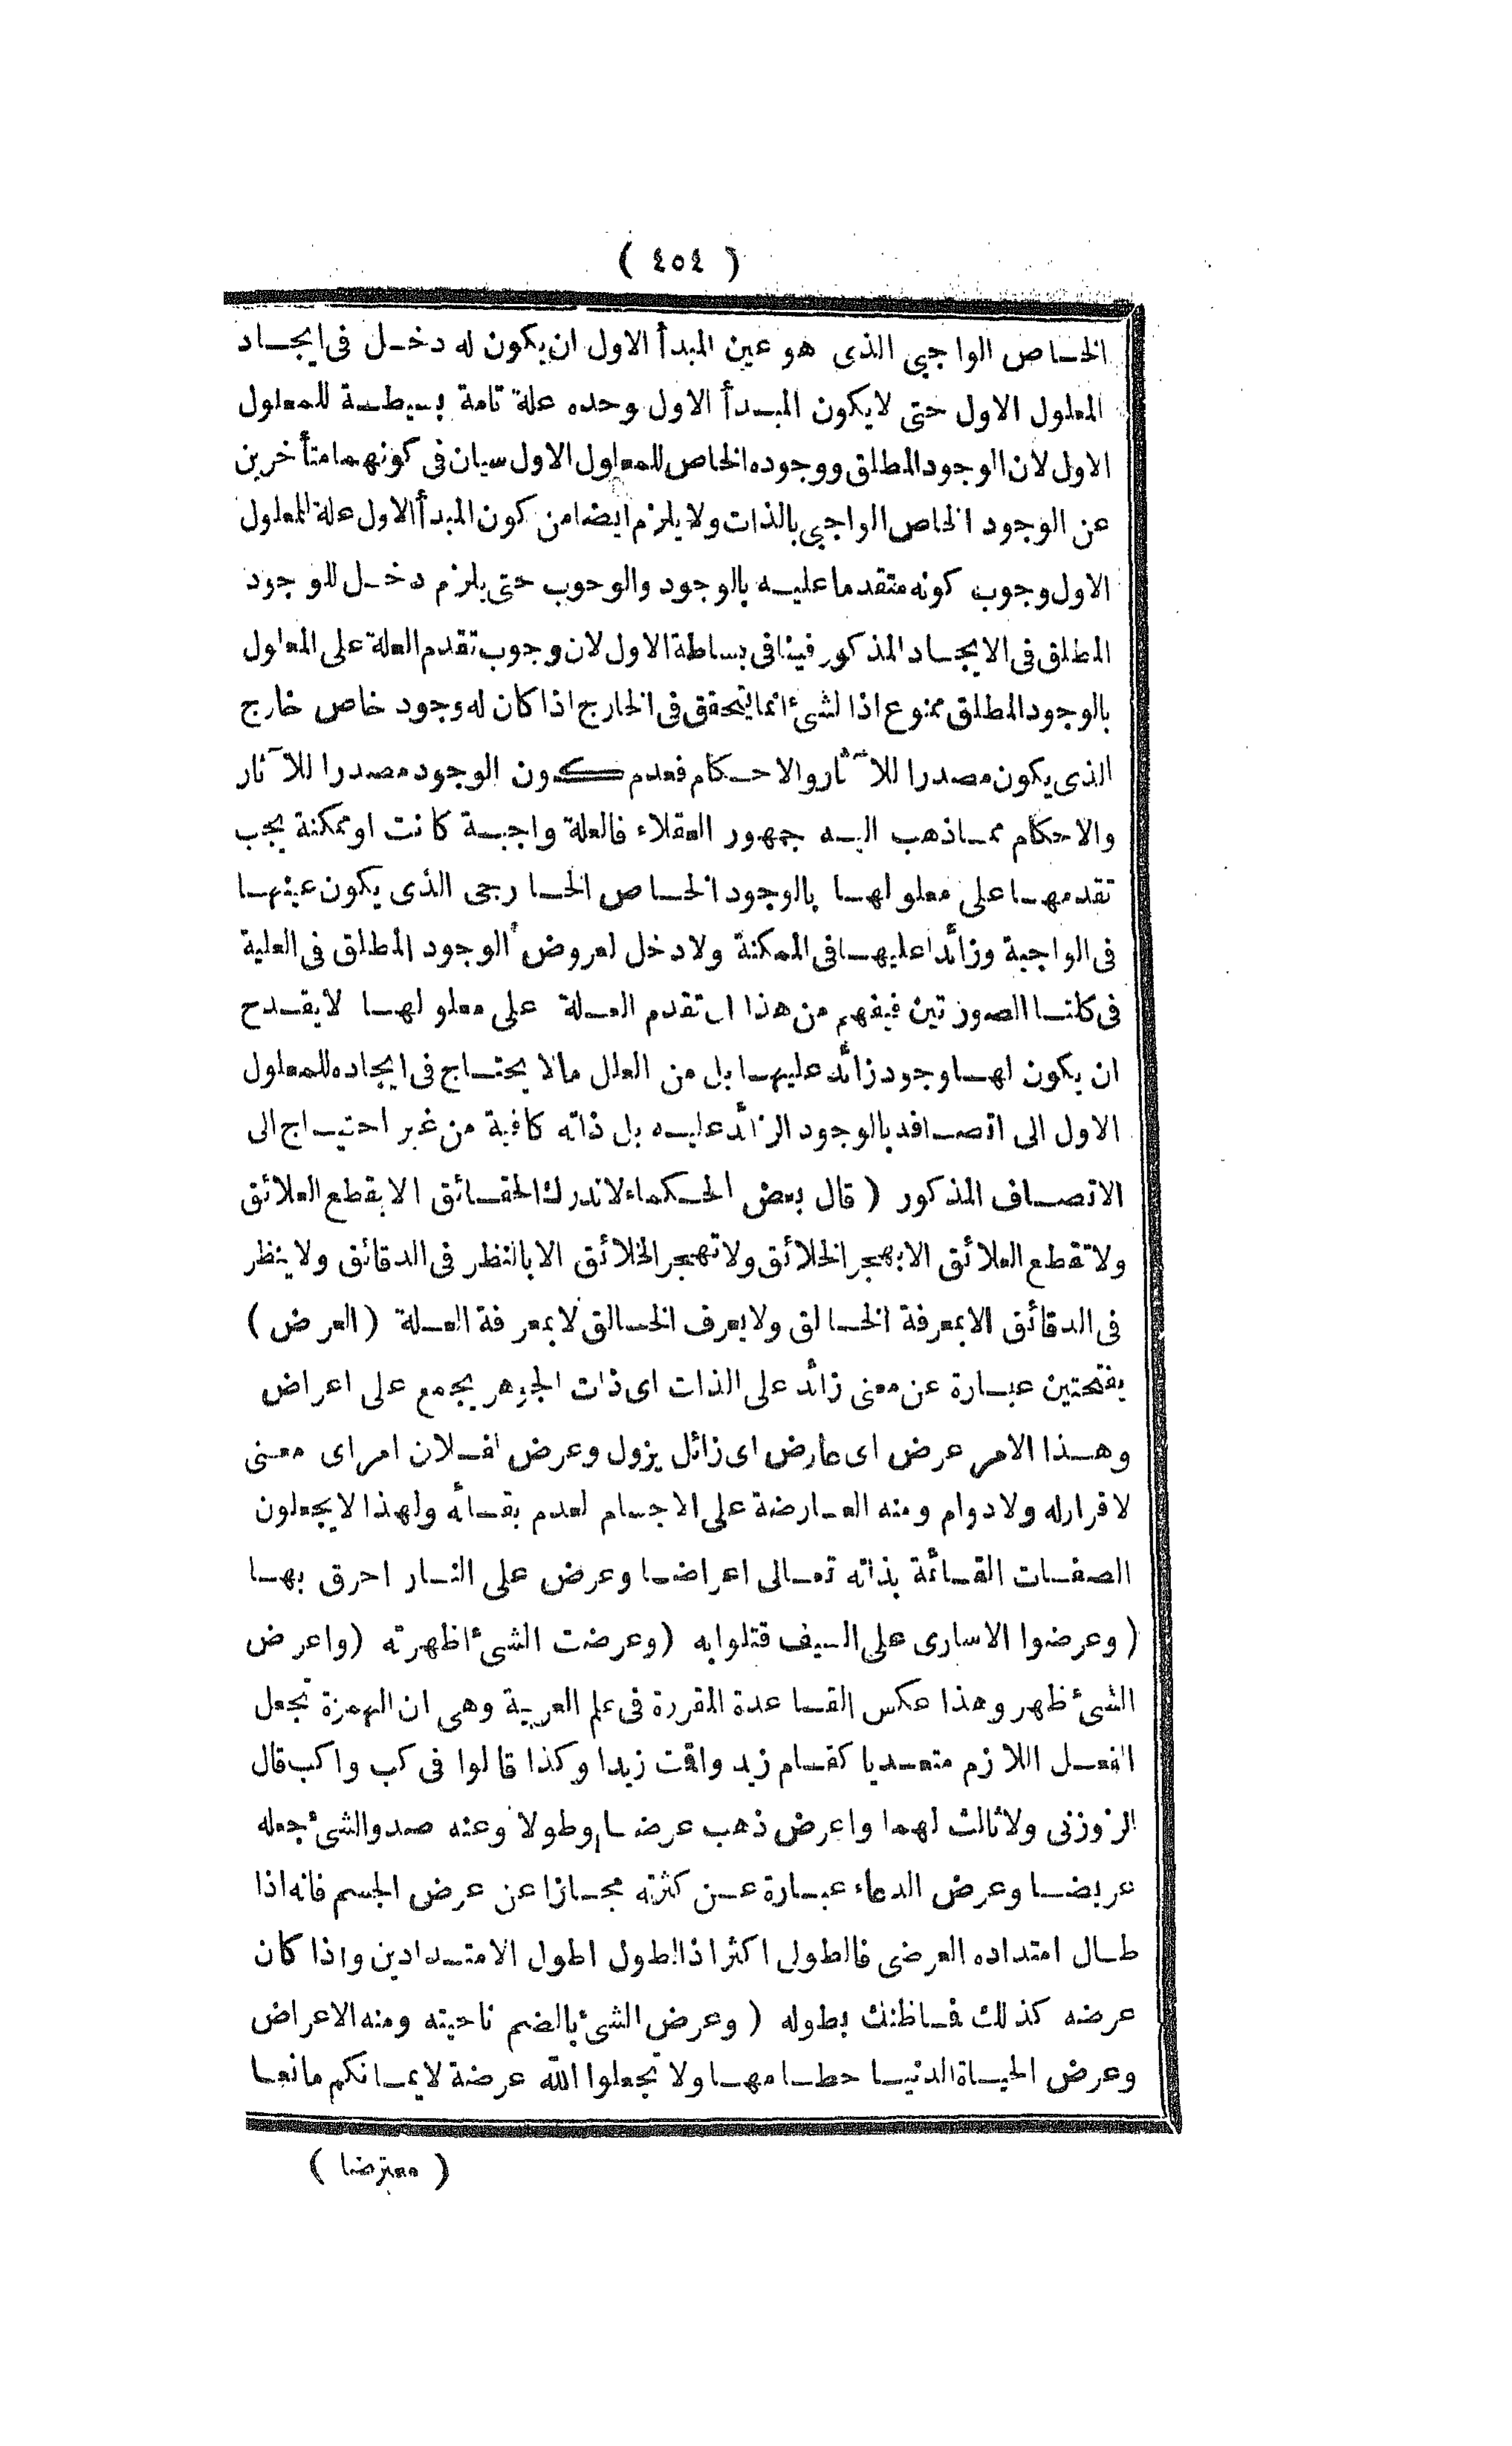 ( ٤٥٤ )
الخاص الواجبى الذى هو عين المبدأ الاول ان يكون له دخل فى ايجاد
المعلول الاول حتى لا يكون المبدأ الاول وحده علة تامة بسيطة للمعلول
الاول لان الوجود المطلق ووجوده الخاص للمعلول الاول سيان فى كونهما متأخرين
عن الوجود الخاص الواجبى بالذات ولا يلزم ايضا من كون المبدأ الاول علة للمعلول
الاول وجوب كونه متقدما عليه بالوجود والوجوب حتى يلزم دخل للوجود
المطلق فى الايجاد المذكور فينا فى بساطة الاول لان وجوب تقدم العلة على المعلول
بالوجود المطلق ممنوع اذ الشئ انما يتحقق فى الخارج اذا كان له وجود خاص خارج
الذى يكون مصدرا للآثار والاحكام فعدم كون الوجود مصدرا للآثار
والاحكام مما ذهب اليه جمهور العقلاء فالعلة واجبة كانت او ممكنة يجب
تقدمها على معلولها بالوجود الخاص الخارجى الذى يكون عينها
فى الواجبة وزائدا عليها فى الممكنة ولا دخل لعروض الوجود المطلق فى العلية
فى كلتا الصورتين فيفهم من هذا ان تقدم العلة على معلولها لا يقدح
ان يكون لها وجود زائد عليها بل من العلل مالا يحتاج فى ايجاده للمعلول
الاول الى اتصافه بالوجود الزائد عليه بل ذاته كافية من غير احتياج الى
الاتصاف المذكور ( قال بعض الحكماء لا ندرك الحقائق الا بقطع العلائق
ولا تقطع العلائق الا بهجر الخلائق ولا تهجر الخلائق الا بالنظر فى الدقائق ولا ينظر
فى الدقائق الا بمعرفة الخالق ولا يعرف الخالق لا بمعرفة العلة ( العرض )
بفتحتين عبارة عن معنى زائد على الذات اى ذات الجوهر يجمع على اعراض
وهذا الامر عرض اى عارض اى زائل يزول وعرض لفلان امر اى معنى
لا قرار له ولا دوام ومنه العارضة على الاجسام لعدم بقائه ولهذا لا يجعلون
الصفات القائمة بذاته تعالى اعراضا وعرض على النار احرق بها
( وعرضوا الاسارى على السيف قتلوا به ( وعرضت الشئ اظهرته ( واعرض
الشئ ظهر وهذا عكس القاعدة المقررة فى علم العربية وهى ان الهمزة تجعل
الفعل اللازم متعديا كقام زيد واقت زيدا وكذا قالوا فى كب واكب قال
الزوزنى ولا ثالث لهما واعرض ذهب عرضا وطولا وعنه صد والشئ جعله
عريضا وعرض الدعاء عبارة عن كثرته مجازا عن عرض الجسم فانه اذا
طال امتداده العرضى فالطولى اكثر اذ الطول اطول الامتدادين واذا كان
عرضه كذلك فما ظنك بطوله ( وعرض الشئ بالضم ناحيته ومنه الاعراض
وعرض الحياة الدنيا حطامها ولا تجعلوا الله عرضة لايمانكم مانعا
( معترضا )